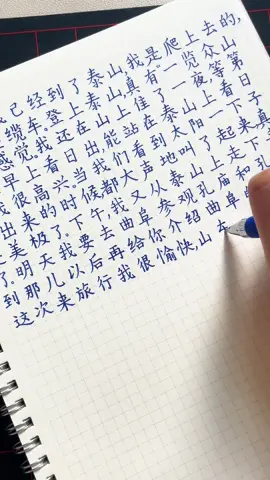 已经到了泰山,我是爬上去的,
缆车。登上泰山,真有一览众山
感觉。我还在山上住了一夜,等第
早上看日出,能站在泰山上看日
我很高兴。当我们看到太阳一下子
出来的时候,都大声地叫了起来,真
美极了。下午,我又从泰山上走下
了。明天我要去曲阜,参观孔庙和孔
到那儿以后再给你介绍曲阜的
这次来旅行我很愉快,山东